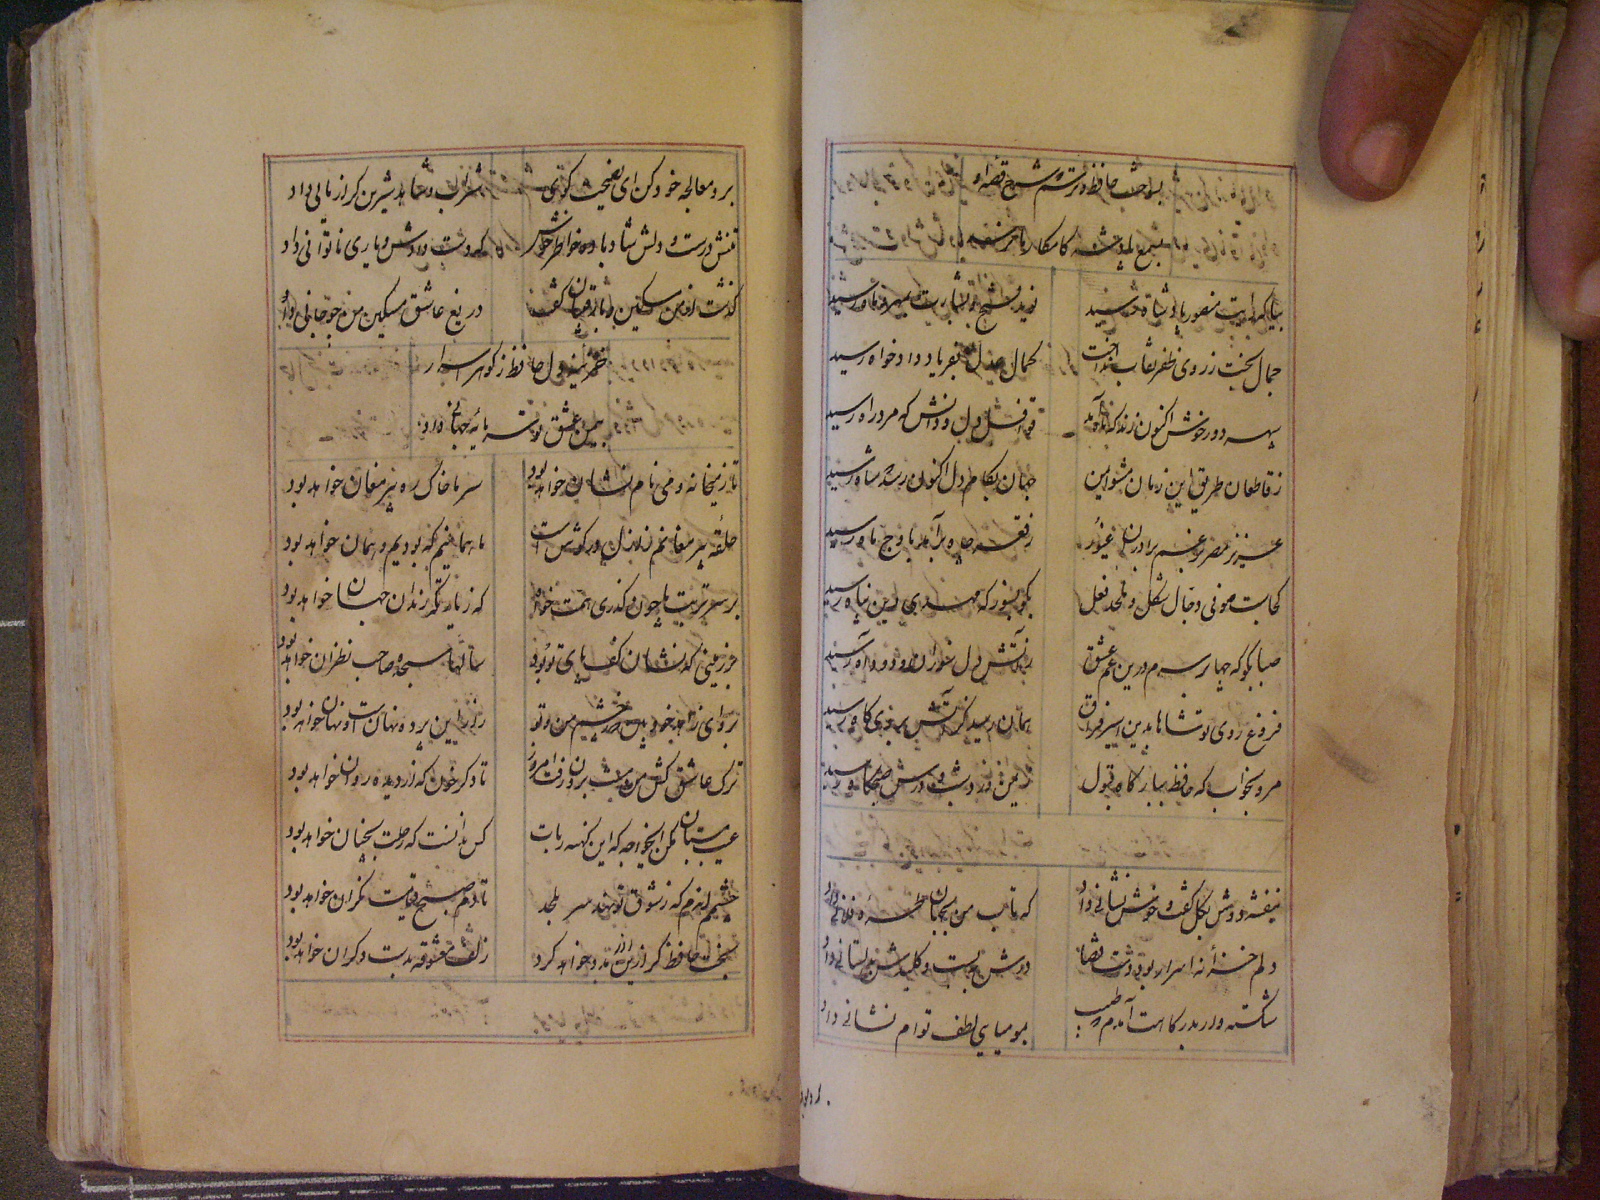 بسوخت حافظ و در شرح قصه او
بسمع پادشه کامکار ما نرسید
بیا که رایت منصور پادشاه رسید نوید فتح و بشارت بمهر و ماه رسید
جمال بخت ز روی ظفر نقاب انداخت کمال عدل بفریاد دادخواه رسید
سپهر دور خوش اکنون زند که ماه آمد جهان بکام دل اکنون رسد که شاه رسید
ز قاطعان طریق این زمان شوند ایمن قوافل دل و دانش که مرد راه رسید
عزیز مصر برغم برادران غیور ز قعر چاه برآمد باوج ماه رسید
کجاست صوفی دجال شکل و ملحد فعل بگو بسوز که مهدی دین پناه رسید
صبا بگو که چها بر سرم درین غم عشق ز آتش دل سوزان و دود آه رسید
ز شوق روی تو شاها بدین اسیر فراق همان رسید کز آتش ببرگ کاه رسید
مرو بخواب که حافظ ببارگاه قبول ز یمن ورد شب و درس صبحگاه رسید
بنفشه دوش بگل گفت و خوش نشانی داد که تاب من بجهان طره فلانی داد
دلم خزانه اسرار بود و دست قضا درش ببست و کلیدش بدلستانی داد
شکسته وار بدرگاهت آمدم که طبیب بمومیایی لطف توام نشانی داد
برو معالجه خود کن ای نصیحت گوی شراب و شاهد شیرین کرا زیانی داد
تنش درست و دلش شاد باد و خاطر خوش که دست دادش و یاری ناتوانی داد
گذشت از من مسکین و با رقیبان گفت دریغ عاشق مسکین من چو جانی داد
خزینه دل حافظ ز گوهر اسرار
بیمن عشق تو سرمایه جهانی داد
تا ز میخانه و می نام و نشان خواهد بود سر ما خاک ره پیر مغان خواهد بود
حلقه پیر مغانم ز ازل در گوش است ما همانیم که بودیم و همان خواهد بود
بر سر تربت ما چون گذری همت خواه که زیارتگه رندان جهان خواهد بود
بر زمینی که نشان کف پای تو بود سالها سجده صاحب نظران خواهد بود
برو ای زاهد خودبین که ز چشم من و تو راز این پرده نهانست و نهان خواهد بود
ترک عاشق کش من مست برون رفت امروز تا دگر خون که از دیده روان خواهد بود
عیب مستان مکن ایخواجه که این کهنه رباط کس ندانست که رحلت بچسان خواهد بود
چشمم اندم که ز شوق تو نهد سر بلحد تا دم صبح قیامت نگران خواهد بود
بخت حافظ گر ازین گونه مدد خواهد کرد زلف معشوقه بدست دگران خواهد بود